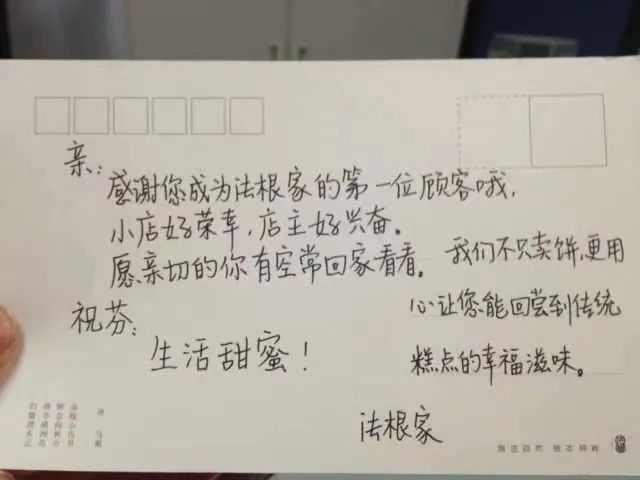 亲:
感谢您成为法根家的第一位顾客哦,
小店好荣幸,店主好兴奋。
愿亲切的你有空常回家看看。
我们不只卖饼,更用
心让您能回尝到传统
糕点的幸福滋味。
祝芬:
生活甜蜜!
法根家